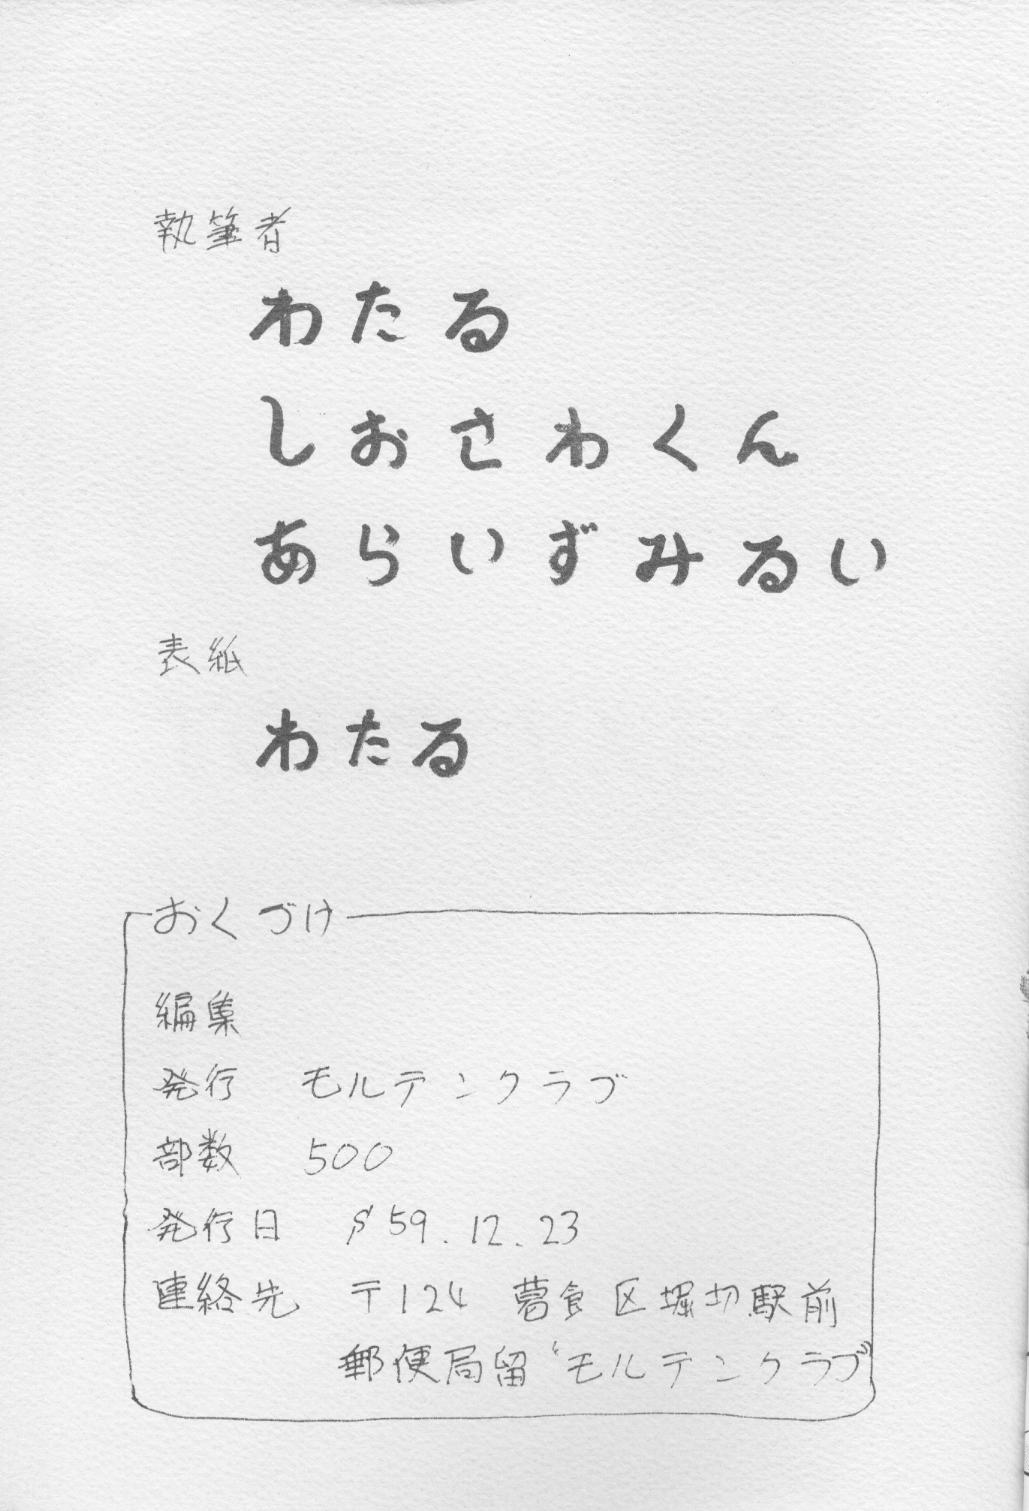 執筆者
わたる
しおさわくん
あらいずみるい
表紙
わたる
おくづけ
編集
発行 モルテンクラブ
部数 500
発行日 S59.12.23
連絡先 〒124 葛食区堀切駅前
郵便局留“モルテンクラブ”